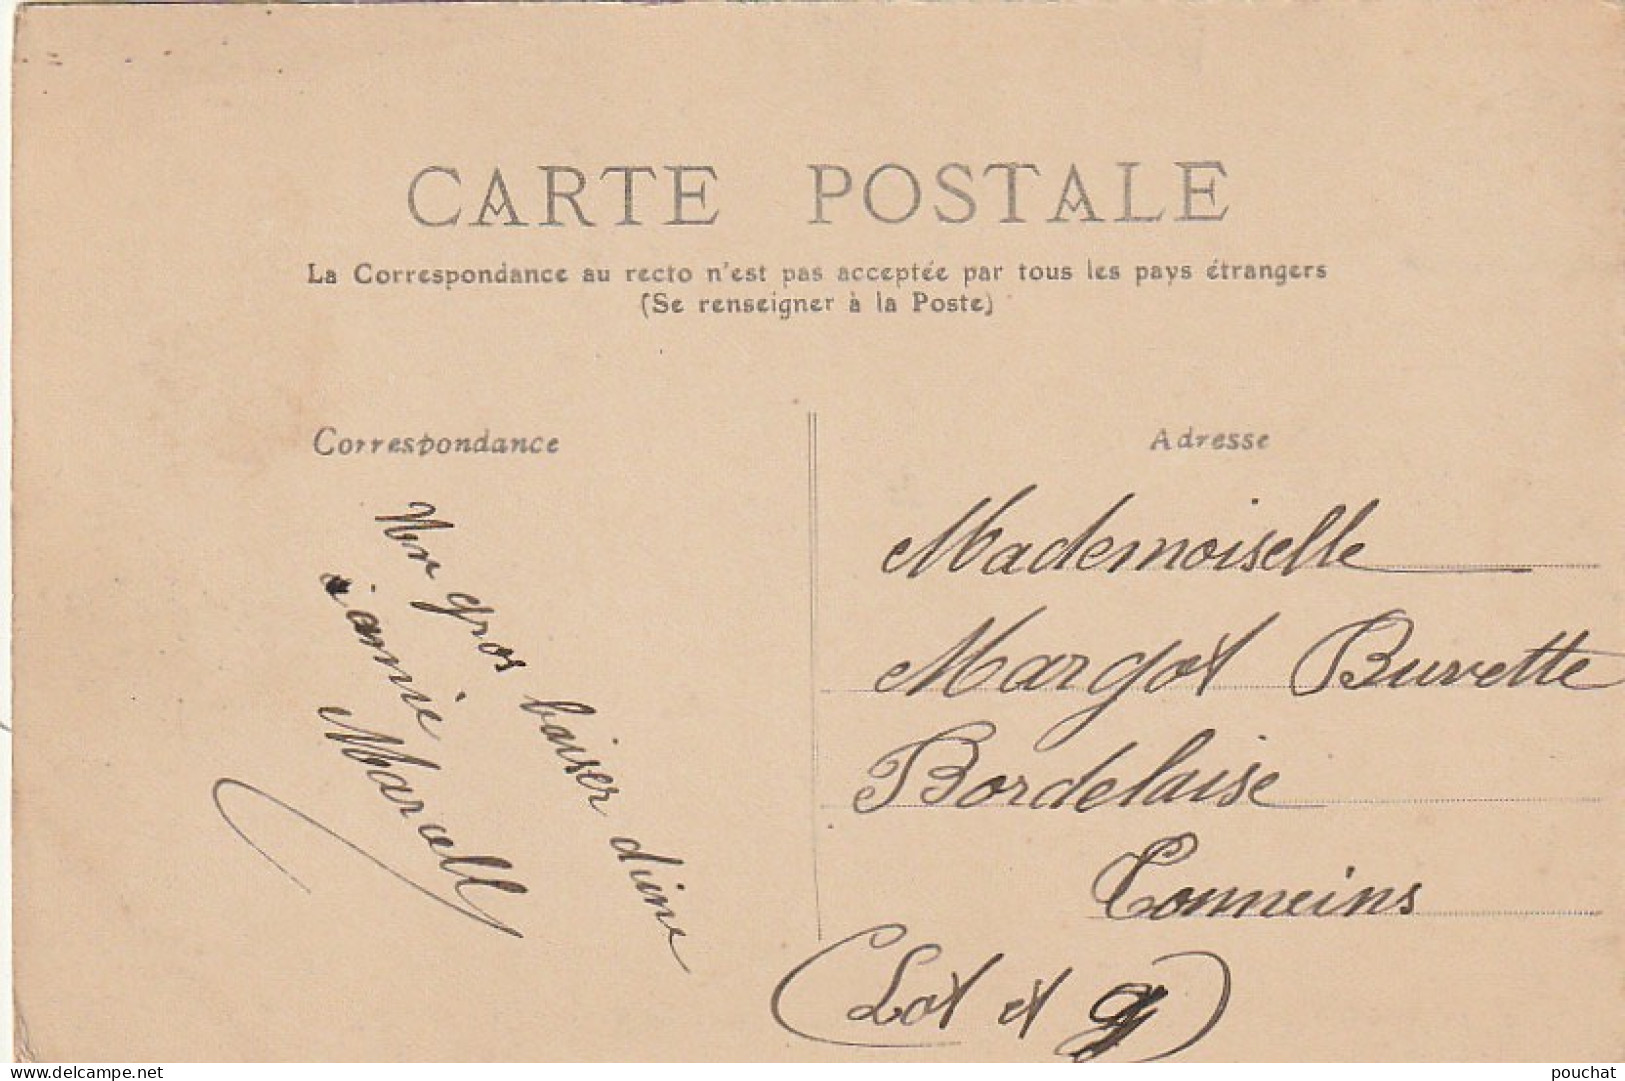 CARTE POSTALE
La Correspondance au recto n'est pas acceptée par tous les pays étrangers
(Se renseigner à la Poste)
Correspondance
Un gros baiser d'une
amie
Marcelle
Adresse
Mademoiselle
Margot Buvette
Bordelaise
Tonneins
(Lot et g)
delcampe.net
pouchat